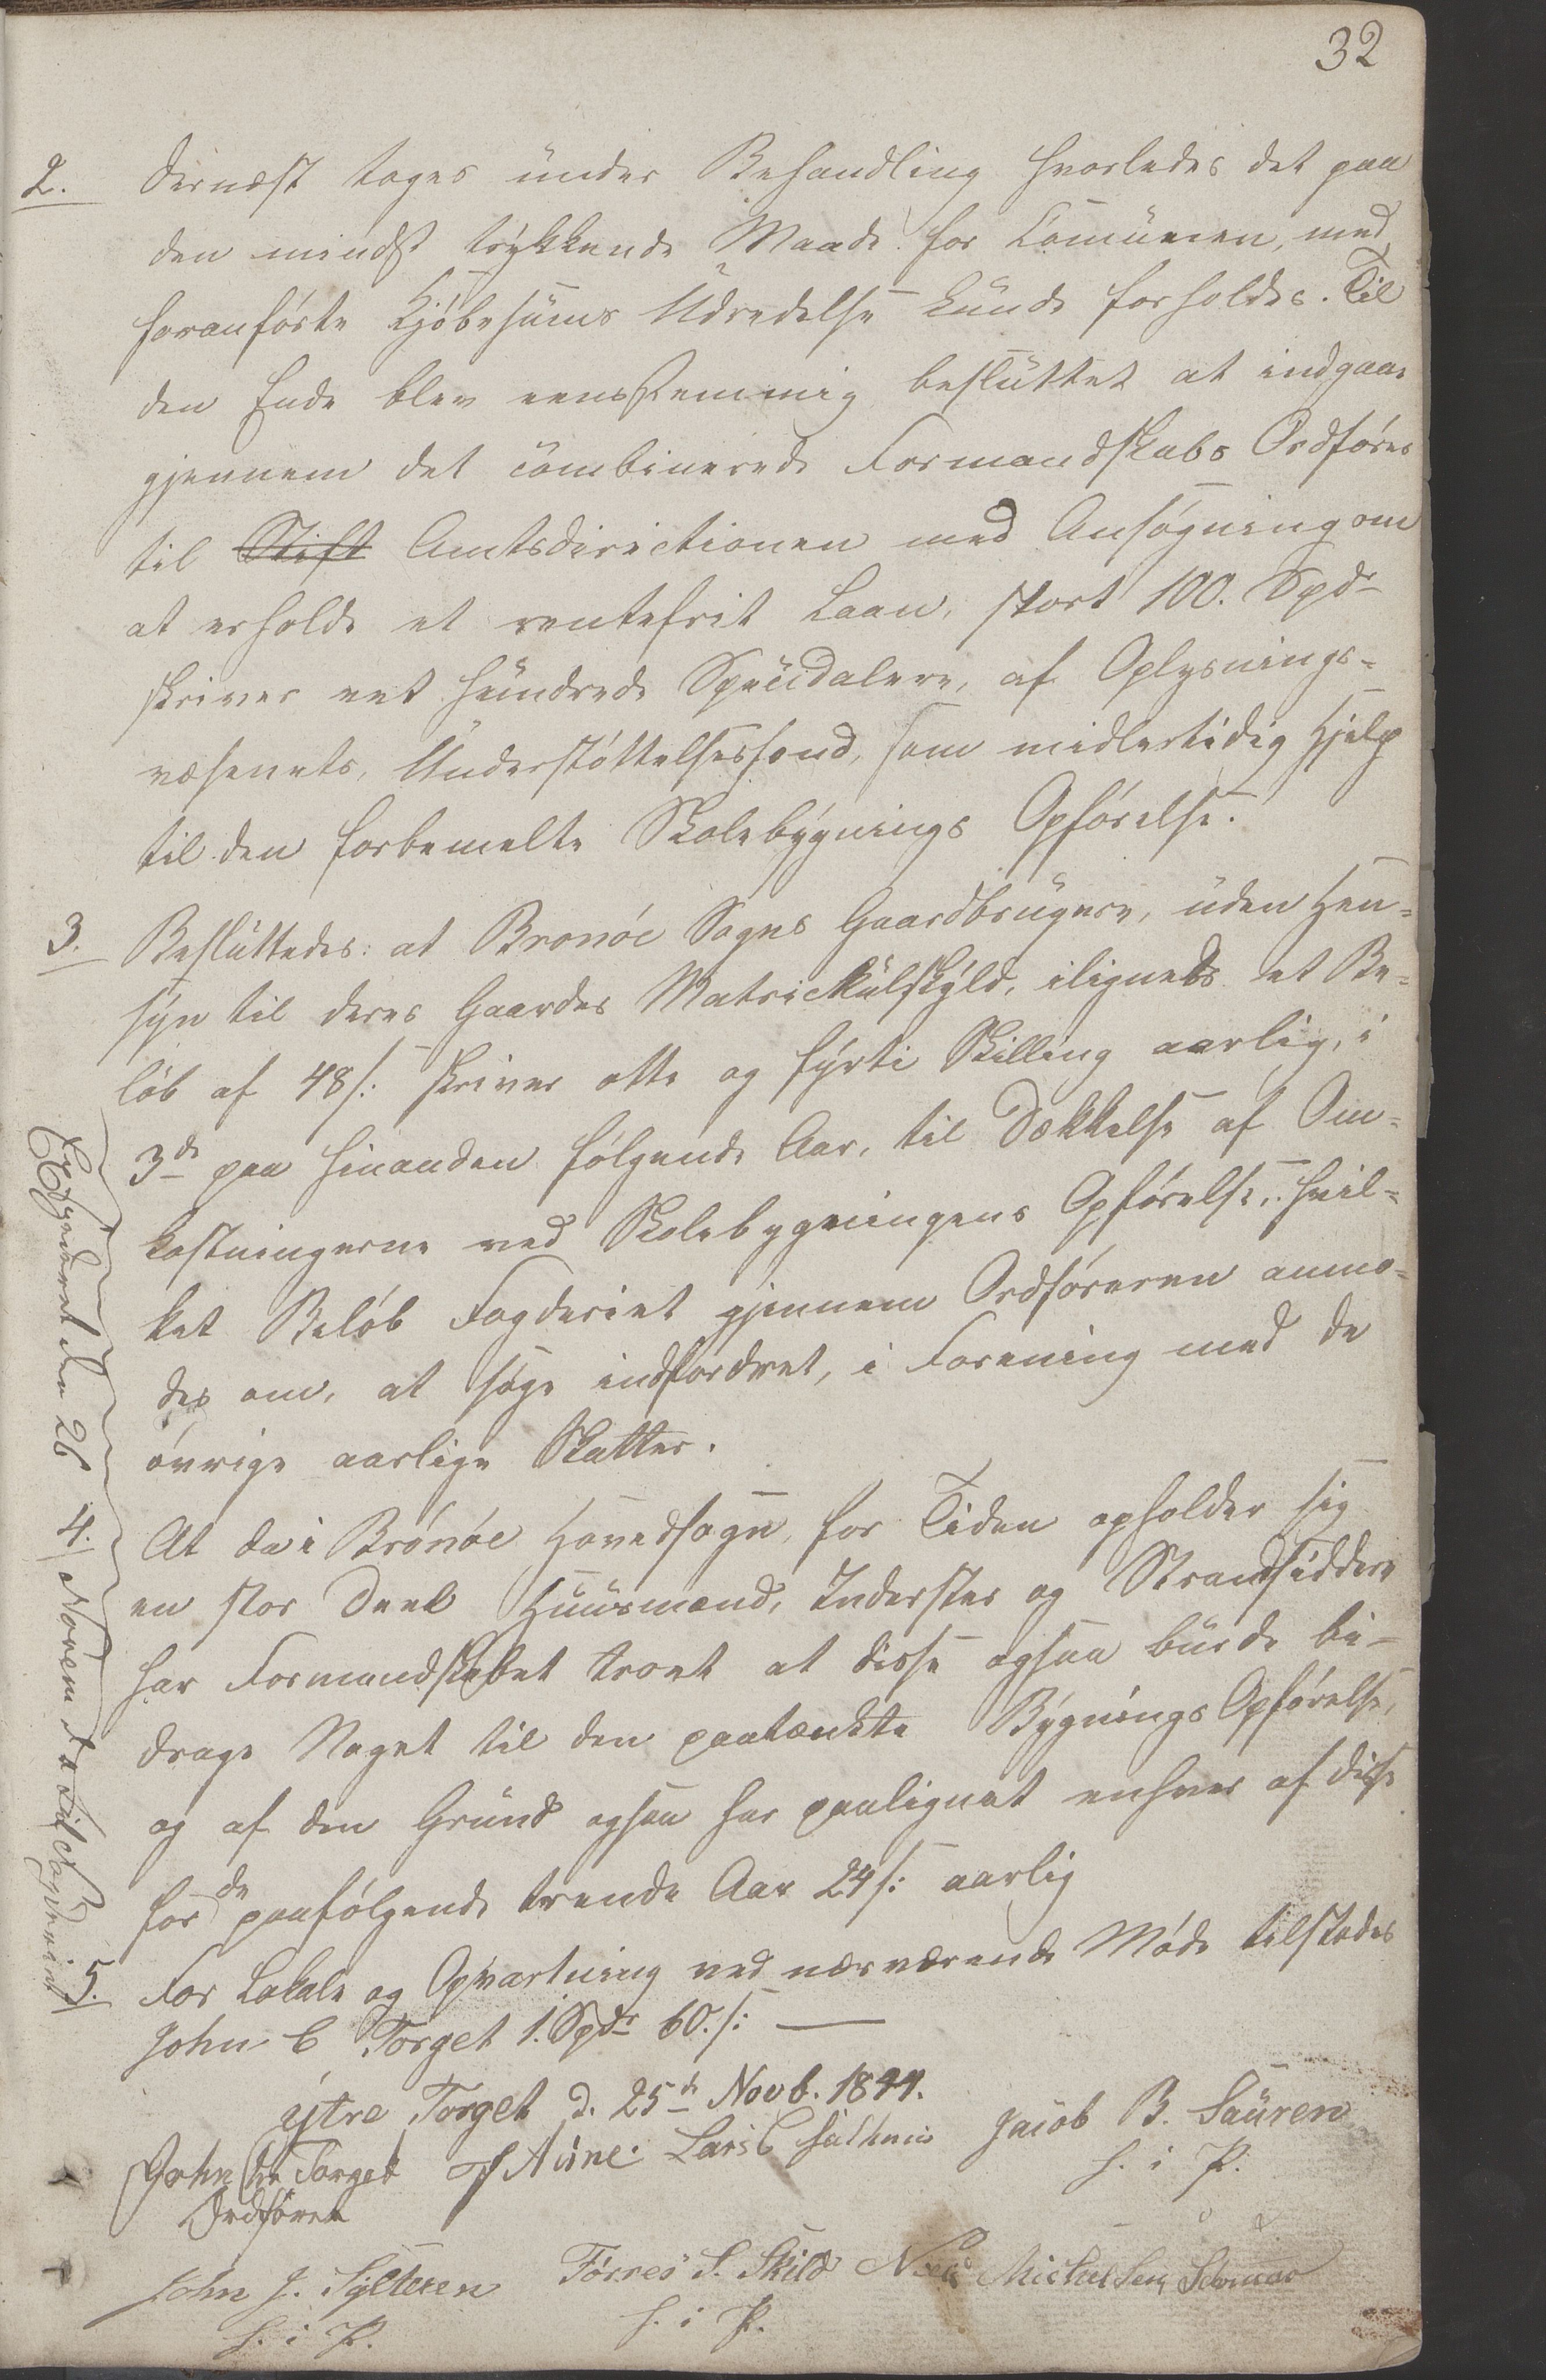 32
2. Dernæst toges under Behandling hvorledes det paa
den mindst trykkende Maade for Comunen, med
foranførte Kjøbesums Udredelse kunde forholdes. Til
den Ende blev eenstemmig besluttet at indgaae
gjennem det combinerede Formandskabs Ordfører
til Stift Amtsdirectionen med Ansøgning om
at erholde et rentefrit Laan, stort 100. Spdr
skriver eet hundrede Speciedalere, af Oplysnings-
væsenets, Understøttelsesfond, som midlertidig Hjelp
til den forbemelte Skolebygnings Opførelse.
3. Besluttedes: at Brønøe Sogns Gaardbrugere, uden Hen-
syn til deres Gaardes Matrickulskyld, ilignedes et Be-
løb af 48 s: skriver otte og fyrti Skilling aarlig, i
3de paa hinanden følgende Aar, til Dækkelse af Om-
kostningerne ved Skolebygningens Opførelse, hvil-
ket Beløb Fogderiet gjennem Ordføreren anmo-
des om, at søge indfordret, i Forening med de
øvrige aarlige Skatter.
4. At da i Brønøe Hovedsogn, for Tiden opholder sig
en stor Deel Huusmænd, Inderster og Strandsiddere
har Formandskabet troet at disse ogsaa burde bi-
drage Noget til den paatænkte Bygnings Opførelse,
og af den Grund ogsaa har paalignet enhver af disse
for de paafølgende trende Aar 24 s: aarlig
5. For Lokale og Opvartning ved nærværende Møde tilstodes
John C Torget 1. Spdr 60. s:
Expederet den 26 Novem da til Fogderiet
ytre Torget d. 25de Novb. 1844.
John Chr Torget Aune Lars C Jacob B. Sauren
Ordfører h. i P.
John J. Sylteren Tørres S. Skild Niels Michelsen
h. i P. h. i P.